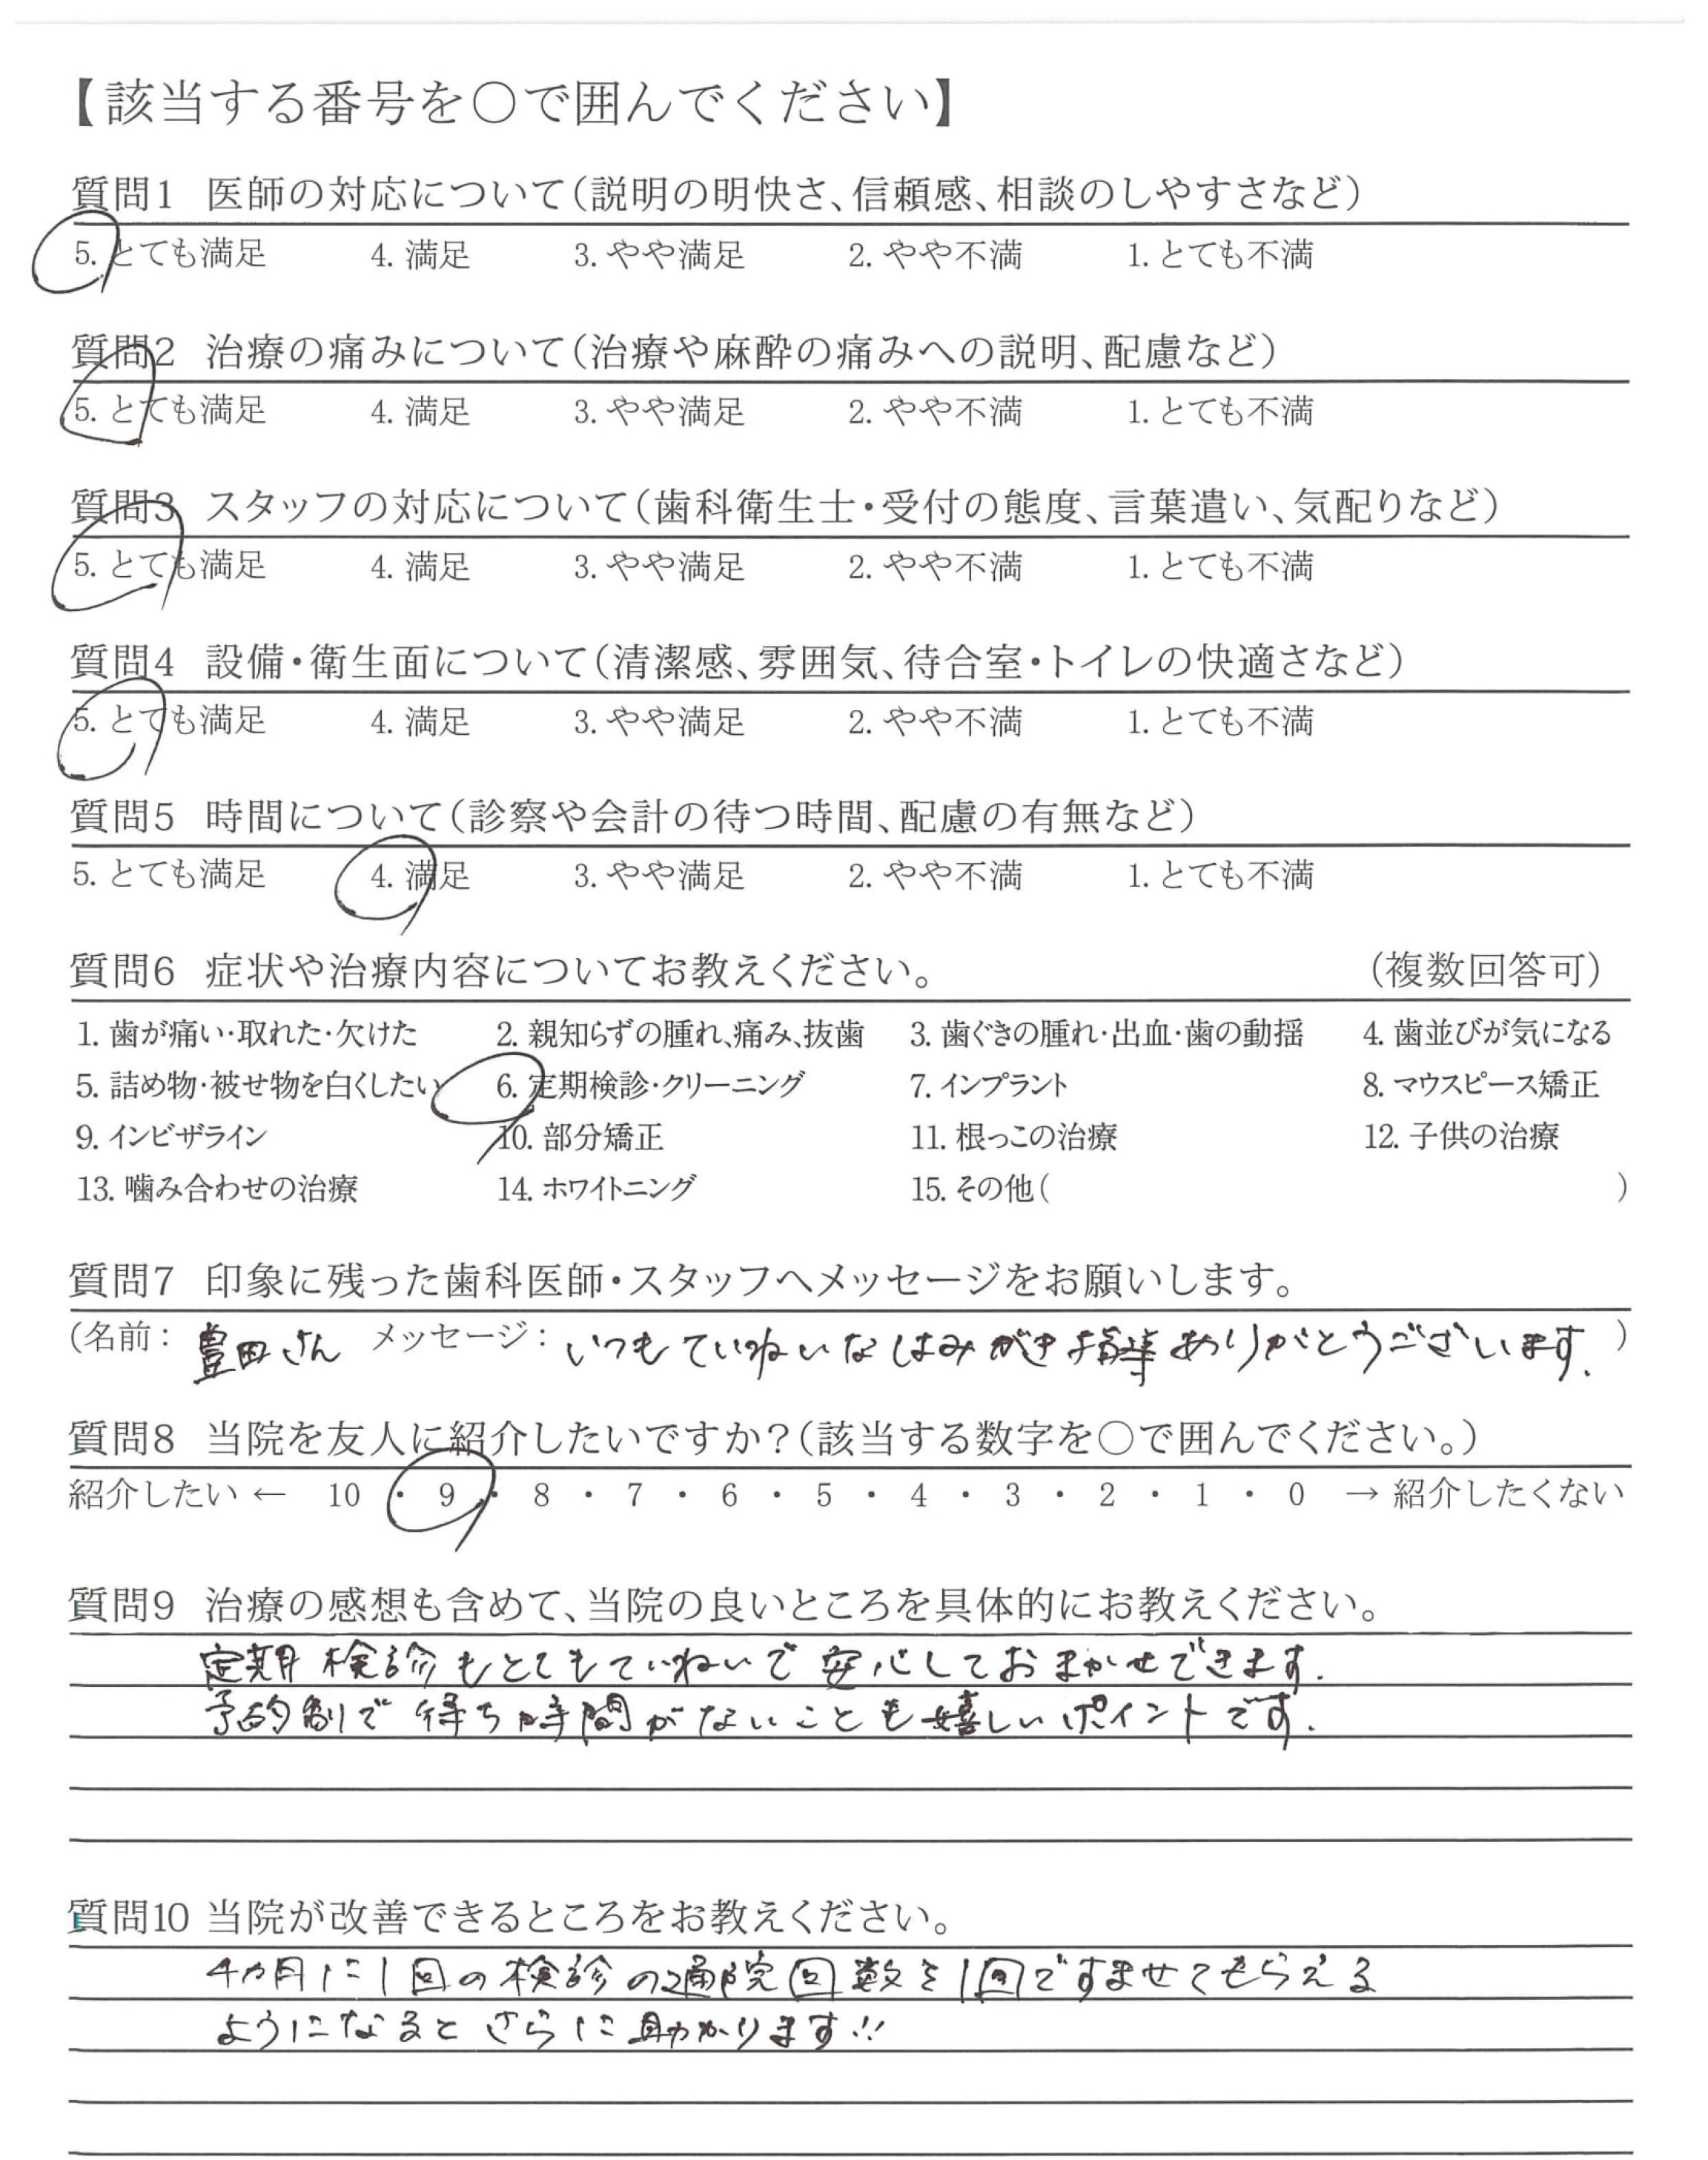 【該当する番号を○で囲んでください】
質問1 医師の対応について(説明の明快さ、信頼感、相談のしやすさなど)
5. とても満足 4. 満足 3. やや満足 2. やや不満 1. とても不満
質問2 治療の痛みについて(治療や麻酔の痛みへの説明、配慮など)
5. とても満足 4. 満足 3. やや満足 2. やや不満 1. とても不満
質問3 スタッフの対応について(歯科衛生士・受付の態度、言葉遣い、気配りなど)
5. とても満足 4. 満足 3. やや満足 2. やや不満 1. とても不満
質問4 設備・衛生面について(清潔感、雰囲気、待合室・トイレの快適さなど)
5. とても満足 4. 満足 3. やや満足 2. やや不満 1. とても不満
質問5 時間について(診察や会計の待つ時間、配慮の有無など)
5. とても満足 4. 満足 3. やや満足 2. やや不満 1. とても不満
質問6 症状や治療内容についてお教えください。 (複数回答可)
1. 歯が痛い・取れた・欠けた 2. 親知らずの腫れ、痛み、抜歯 3. 歯ぐきの腫れ・出血・歯の動揺 4. 歯並びが気になる
5. 詰め物・被せ物を白くしたい 6. 定期検診・クリーニング 7. インプラント 8. マウスピース矯正
9. インビザライン 10. 部分矯正 11. 根っこの治療 12. 子供の治療
13. 噛み合わせの治療 14. ホワイトニング 15. その他( )
質問7 印象に残った歯科医師・スタッフへメッセージをお願いします。
(名前: 豊田さん メッセージ: いつもていねいなはみがき指導ありがとうございます. )
質問8 当院を友人に紹介したいですか?(該当する数字を○で囲んでください。)
紹介したい ← 10 ・ 9 ・ 8 ・ 7 ・ 6 ・ 5 ・ 4 ・ 3 ・ 2 ・ 1 ・ 0 → 紹介したくない
質問9 治療の感想も含めて、当院の良いところを具体的にお教えください。
定期検診もとてもていねいで安心しておまかせできます.
予約制で待ち時間がないことも嬉しいポイントです.
質問10 当院が改善できるところをお教えください。
4カ月に1回の検診の通院回数を1回ですませてもらえる
ようになるとさらに助かります!!